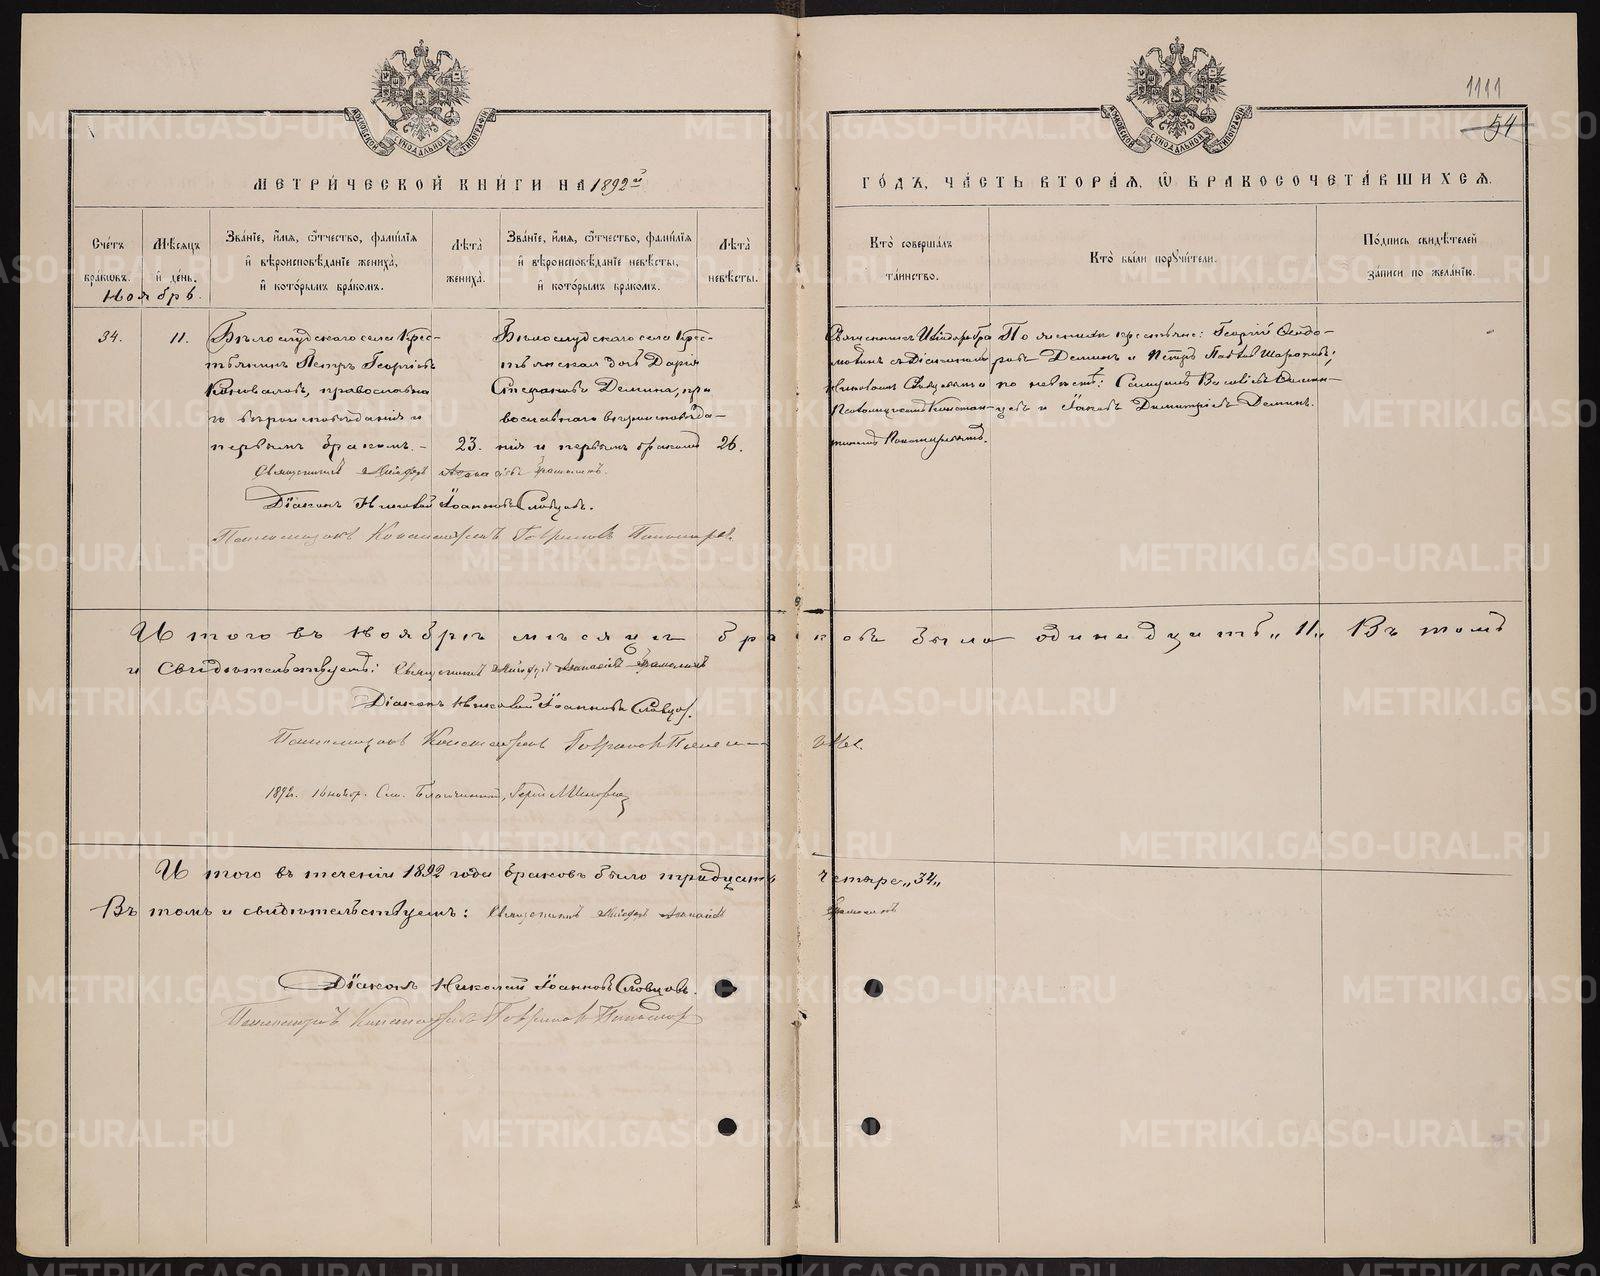 1111
54
МЕТРИ́ЧЕСКОЙ КНИ́ГИ НА 1892й
ГО́ДЪ, ЧА́СТЬ ВТОРА́Я, Ѿ БРАКОСОЧЕТА́ВШИХСЯ.
Сче́тъ бра́кѡвъ.
Мѣ́сяцъ и́ де́нь.
Зва́нїе, и́мя, ѻ́тчество, фами́лїя и́ вѣроисповѣ́данїе жениха̀, и́ кото́рымъ бра́комъ.
Лѣ́та̀ жениха̀.
Зва́нїе, и́мя, ѻ́тчество, фами́лїя и́ вѣроисповѣ́данїе невѣ́сты, и́ кото́рымъ бра́комъ.
Лѣ́та̀ невѣ́сты.
Кто̀ соверша́лъ та́инство.
Кто̀ бы́ли порꙋчи́тели.
По́дпись свидѣ́телей за́писи по жела́нїю.
Ноябрь.
34.
11.
Бѣлослудского села Крес-
тьянинъ Петръ Георгіевъ
Коноваловъ, православна-
го вѣроисповѣданія и
первымъ бракомъ.-
23.
Бѣлослудского села Крес-
тьянская дочь Дарія
Стефанова Демина, пра
вославнаго вѣроисповѣда-
нія и первымъ бракомъ
26.
Священникъ Исидоръ
съ Діакономъ
Николаемъ Словцовымъ и
Псаломщикомъ Констан-
тиномъ Пономаревымъ.
По женихѣ крестьяне: Георгій Ѳедо-
ровъ Деминъ и Петръ Павловъ
по невѣстѣ: Василіевъ
и Іаковъ Димитріевъ Деминъ.
Священникъ Исидоръ
Діаконъ Николай Іоанновъ Словцовъ.
Псаломщикъ Константинъ Гавриловъ Пономаревъ
Итого въ Ноябрѣ мѣсяцѣ браковъ было одинадцать „11„ Въ томъ
и свидѣтельствуемъ: Священникъ Исидоръ
Діаконъ Николай Іоанновъ Словцовъ.
Псаломщикъ Константинъ Гавриловъ Пономаревъ.
1892. 16 ноябр. См. Благочинный,
Итого въ теченіи 1892 года браковъ было тридцать четыре „34„
Въ томъ и свидѣтельствуемъ: Священникъ Исидоръ
Діаконъ Николай Іоанновъ Словцовъ.
Псаломщикъ Константинъ Гавриловъ Пономар
METRIKI.GASO-URAL.RU